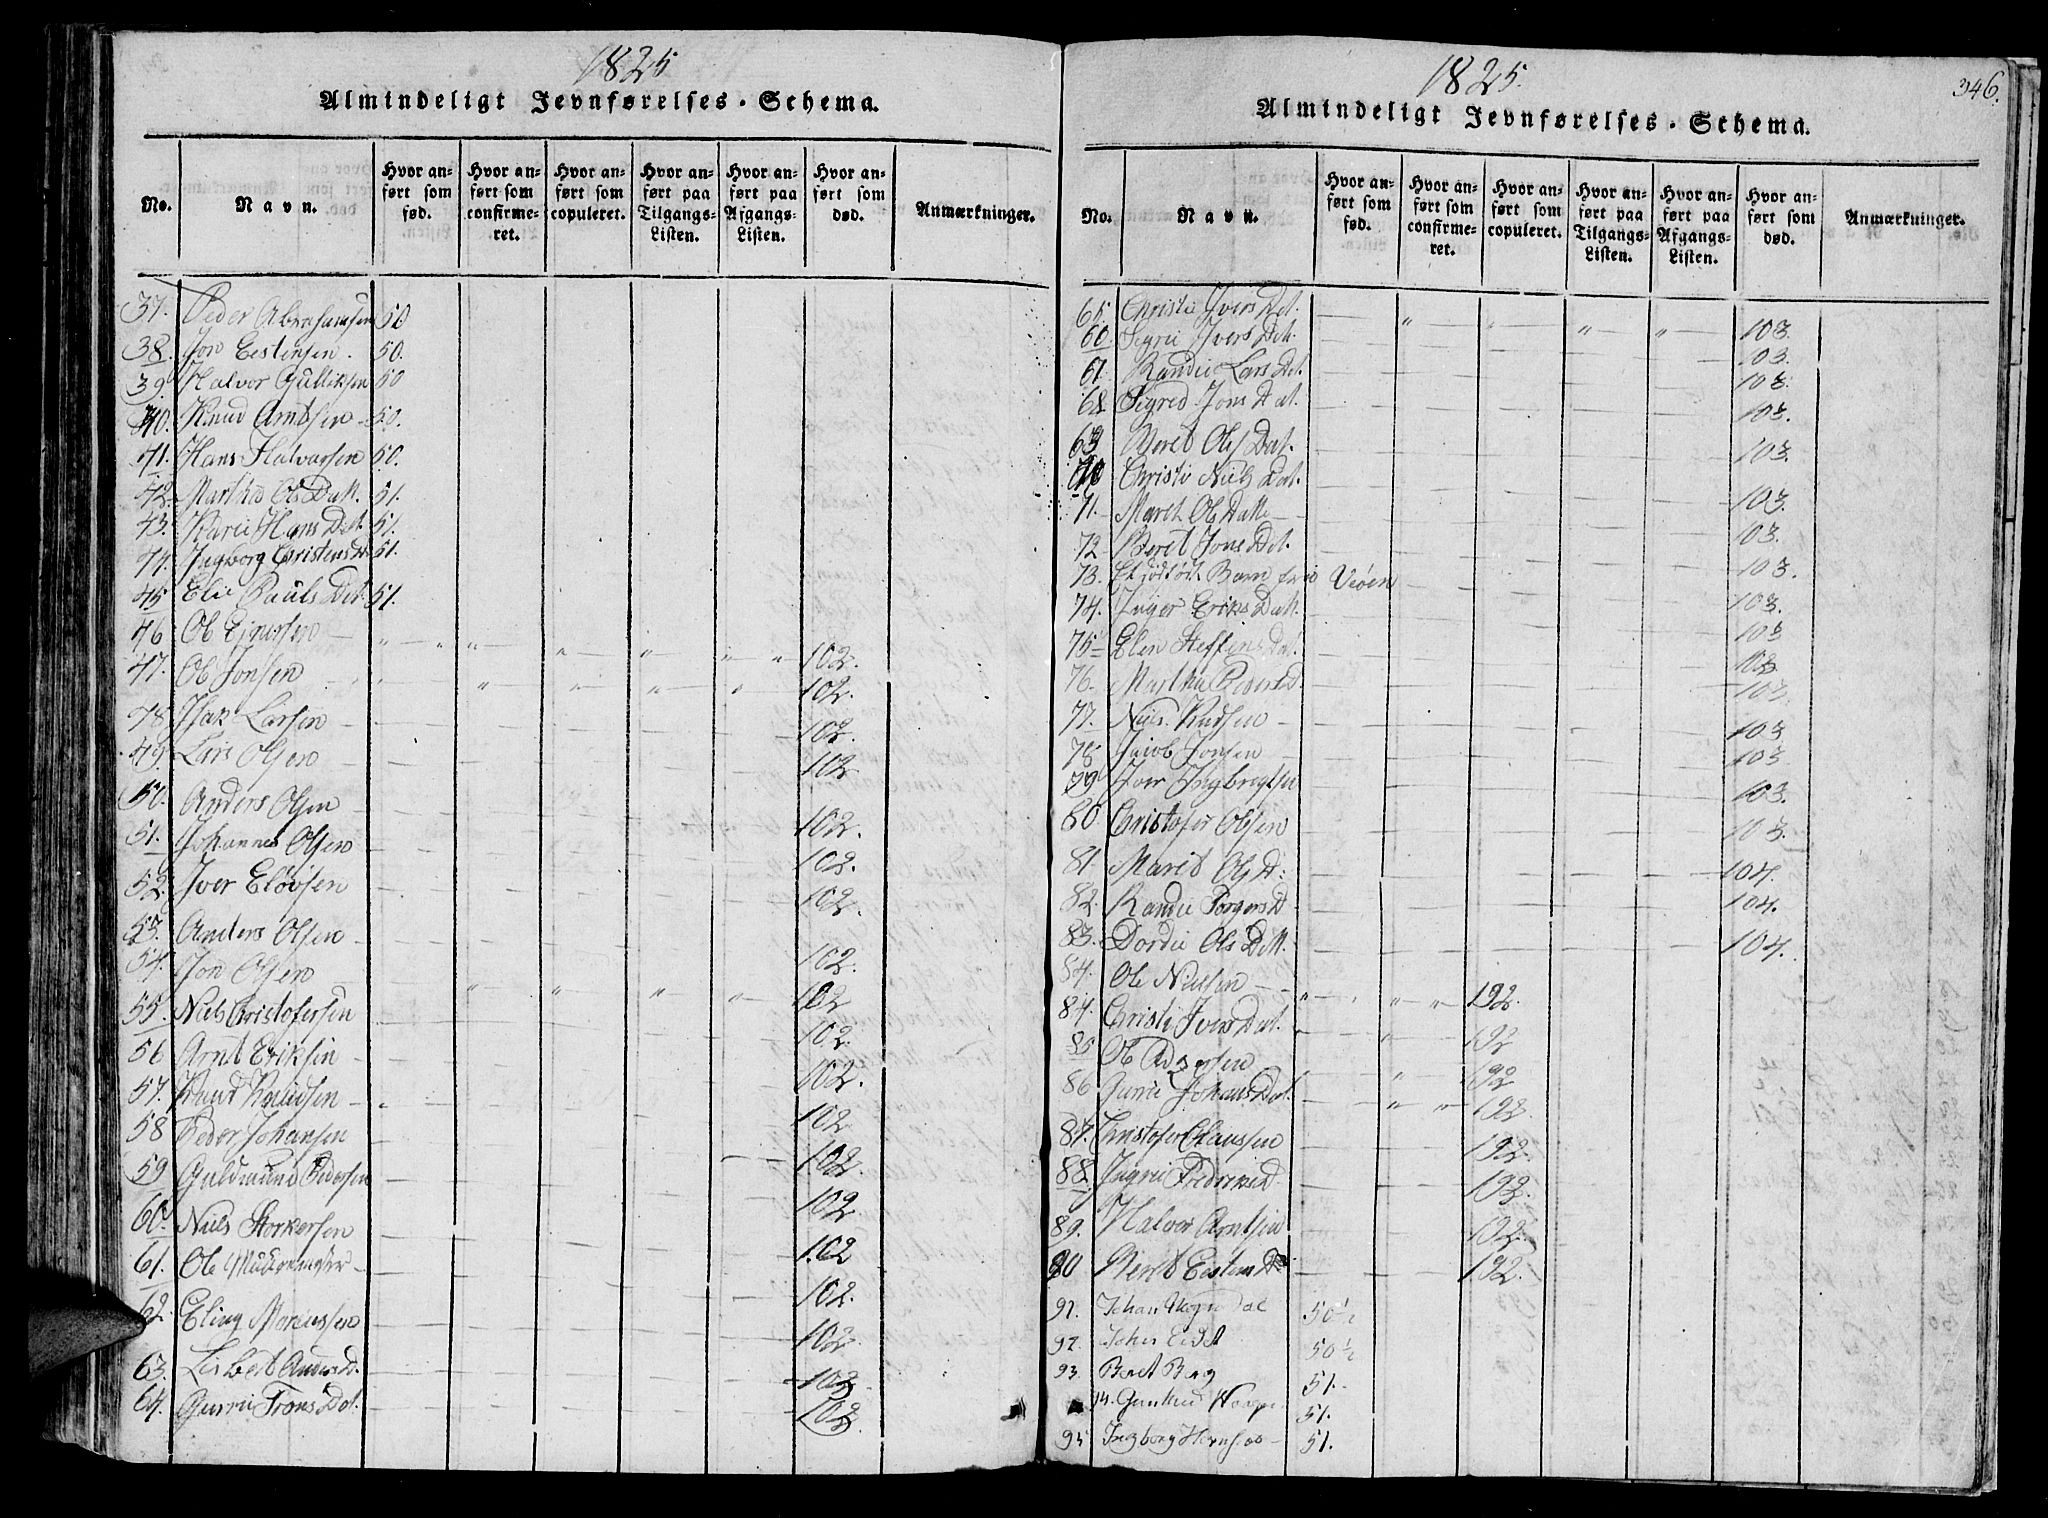 1825
Almindeligt Jevnførelses-Schema.
No. Navn. Hvor anført som fød. Hvor anført som confirmeret. Hvor anført som copuleret. Hvor anført paa Tilgangs-Listen. Hvor anført paa Afgangs-Listen. Hvor anført som død. Anmærkninger.
37. Peder Abrahamsen 50
38. Jon Eestensen. 50.
39. Halvor Gulliksen 50
40. Knud Arntsen 50.
41. Hans Halvorsen 50.
42. Martha Ols Datt. 51.
43. Karii Hans Dat. 51.
44. Ingborg Christens D. 51.
45 Elie Pauls Dat. 51.
46 Ole 102.
47. Ole Jonsen 102.
48. Isak Larsen 102.
49. Lars Olsen 102
50. Anders Olsen 102.
51. Johannes Olsen 102.
52. Iver 102.
53. Anders Olsen 102.
54. Jon Olsen 102
55. Niels Christofersen 102.
56 Arnt Eriksen 102.
57. Knud Knudsen 102
58 Peder Johansen 102.
59 Guldmund Pedersen 102
60. Niels Storkersen 102
61. Ole 102.
62 Eling 102
63. Lisbet Anders D. 102
64. Gurrie Trons Dat. 102.
1825.
346.
Almindeligt Jevnførelses-Schema.
No. Navn. Hvor anført som fød. Hvor anført som confirmeret. Hvor anført som copuleret. Hvor anført paa Tilgangs-Listen. Hvor anført paa Afgangs-Listen. Hvor anført som død. Anmærkninger.
65. Christi Ivers Dat. 103.
60. Sigrii Ivers Datt. 103.
61. Randii Lars Dat. 103.
68 Sigred Jons Dat. 103.
69 Beret Ols Dat. 103.
70 Christi Niels Dat. 103.
71. Maret Ols Datt 103.
72 Beret Jons Dat. 103.
73. Et dödfödt Barn fra Viöen 103.
74. Inger Eriks Datt. 103
75 Elen Steffens Dat. 103
76. Martha Peders D. 103.
77. Niels Knudsen 103
78 Jacob Jonsen 103
79 Iver Ingbregtsen 103.
80 Christofer Olsen 103.
81. Marit Ols D. 104.
82. Randii Torgers D 104.
83. Dordie Ols Datt. 104.
84. Ole Nielsen 192.
84. Christi Ivers Dat. 192
85 Ole 192
86 Gurrii Johans Dat. 192.
87. Christofer Claussen 192.
88. Ingrii Fredriks D 192.
89. Halvor Arntsen 192.
90 Beret Eestens D. 192.
91. Johan 50½
92. John Eidet 50½
93 Beret Berg 51.
94. 51.
95 Ingborg 51.